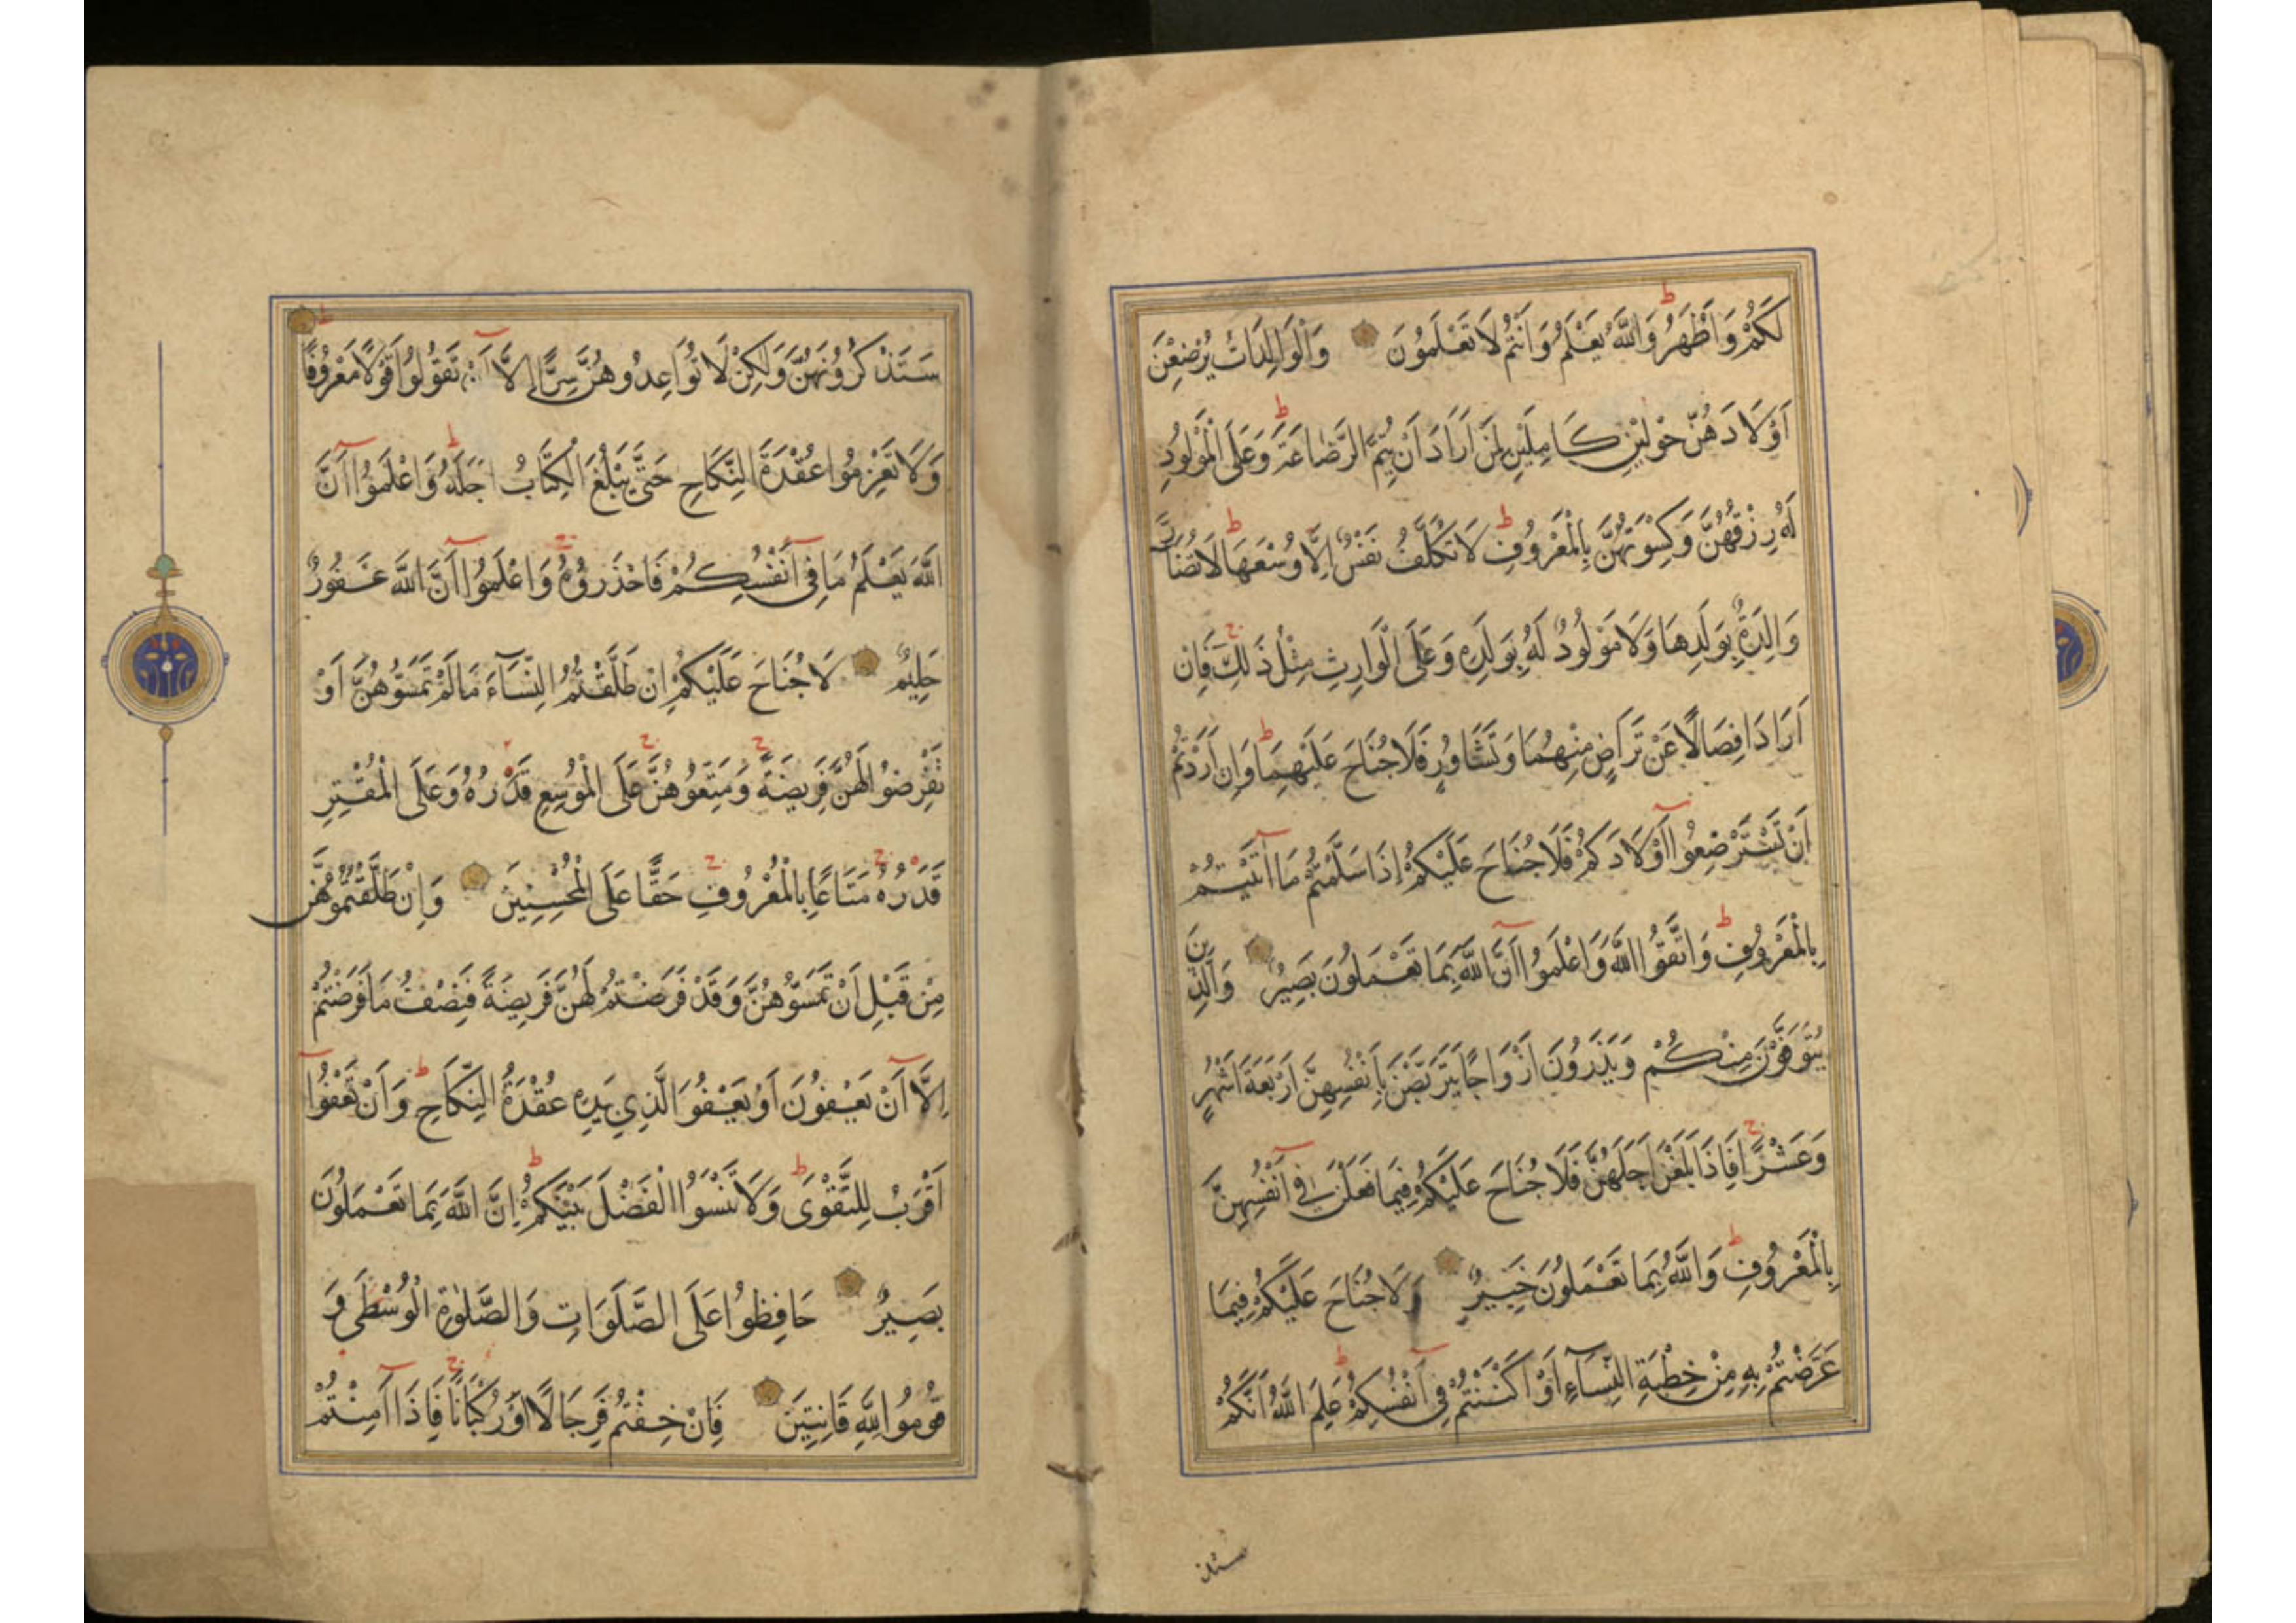 لَكُمْ وَاَطْهَرُ وَاللّٰهُ يَعْلَمُ وَاَنْتُمْ لَا تَعْلَمُونَ وَالْوَالِدَاتُ يُرْضِعْنَ
اَوْلَادَهُنَّ حَوْلَيْنِ كَامِلَيْنِ لِمَنْ اَرَادَ اَنْ يُتِمَّ الرَّضَاعَةَ وَعَلَى الْمَوْلُودِ
لَهُ رِزْقُهُنَّ وَكِسْوَتُهُنَّ بِالْمَعْرُوفِ لَا تُكَلَّفُ نَفْسٌ اِلَّا وُسْعَهَا لَا تُضَارَّ
وَالِدَةٌ بِوَلَدِهَا وَلَا مَوْلُودٌ لَهُ بِوَلَدِهِ وَعَلَى الْوَارِثِ مِثْلُ ذَلِكَ فَاِنْ
اَرَادَا فِصَالًا عَنْ تَرَاضٍ مِنْهُمَا وَتَشَاوُرٍ فَلَا جُنَاحَ عَلَيْهِمَا وَاِنْ اَرَدْتُمْ
اَنْ تَسْتَرْضِعُوا اَوْلَادَكُمْ فَلَا جُنَاحَ عَلَيْكُمْ اِذَا سَلَّمْتُمْ مَا اٰتَيْتُمْ
بِالْمَعْرُوفِ وَاتَّقُوا اللّٰهَ وَاعْلَمُوا اَنَّ اللّٰهَ بِمَا تَعْمَلُونَ بَصِيرٌ وَالَّذِينَ
يُتَوَفَّوْنَ مِنْكُمْ وَيَذَرُونَ اَزْوَاجًا يَتَرَبَّصْنَ بِاَنْفُسِهِنَّ اَرْبَعَةَ اَشْهُرٍ
وَعَشْرًا فَاِذَا بَلَغْنَ اَجَلَهُنَّ فَلَا جُنَاحَ عَلَيْكُمْ فِيمَا فَعَلْنَ فِي اَنْفُسِهِنَّ
بِالْمَعْرُوفِ وَاللّٰهُ بِمَا تَعْمَلُونَ خَبِيرٌ وَلَا جُنَاحَ عَلَيْكُمْ فِيمَا
عَرَّضْتُمْ بِهِ مِنْ خِطْبَةِ النِّسَاءِ اَوْ اَكْنَنْتُمْ فِي اَنْفُسِكُمْ عَلِمَ اللّٰهُ اَنَّكُمْ
سَتَذْكُرُونَهُنَّ وَلٰكِنْ لَا تُوَاعِدُوهُنَّ سِرًّا اِلَّا اَنْ تَقُولُوا قَوْلًا مَعْرُوفًا
وَلَا تَعْزِمُوا عُقْدَةَ النِّكَاحِ حَتَّى يَبْلُغَ الْكِتَابُ اَجَلَهُ وَاعْلَمُوا اَنَّ
اللّٰهَ يَعْلَمُ مَا فِي اَنْفُسِكُمْ فَاحْذَرُوهُ وَاعْلَمُوا اَنَّ اللّٰهَ غَفُورٌ
حَلِيمٌ لَا جُنَاحَ عَلَيْكُمْ اِنْ طَلَّقْتُمُ النِّسَاءَ مَا لَمْ تَمَسُّوهُنَّ اَوْ
تَفْرِضُوا لَهُنَّ فَرِيضَةً وَمَتِّعُوهُنَّ عَلَى الْمُوسِعِ قَدَرُهُ وَعَلَى الْمُقْتِرِ
قَدَرُهُ مَتَاعًا بِالْمَعْرُوفِ حَقًّا عَلَى الْمُحْسِنِينَ وَاِنْ طَلَّقْتُمُوهُنَّ
مِنْ قَبْلِ اَنْ تَمَسُّوهُنَّ وَقَدْ فَرَضْتُمْ لَهُنَّ فَرِيضَةً فَنِصْفُ مَا فَرَضْتُمْ
اِلَّا اَنْ يَعْفُونَ اَوْ يَعْفُوَ الَّذِي بِيَدِهِ عُقْدَةُ النِّكَاحِ وَاَنْ تَعْفُوا
اَقْرَبُ لِلتَّقْوَى وَلَا تَنْسَوُا الْفَضْلَ بَيْنَكُمْ اِنَّ اللّٰهَ بِمَا تَعْمَلُونَ
بَصِيرٌ حَافِظُوا عَلَى الصَّلَوَاتِ وَالصَّلٰوةِ الْوُسْطَى وَ
قُومُوا لِلّٰهِ قَانِتِينَ فَاِنْ خِفْتُمْ فَرِجَالًا اَوْ رُكْبَانًا فَاِذَا اَمِنْتُمْ